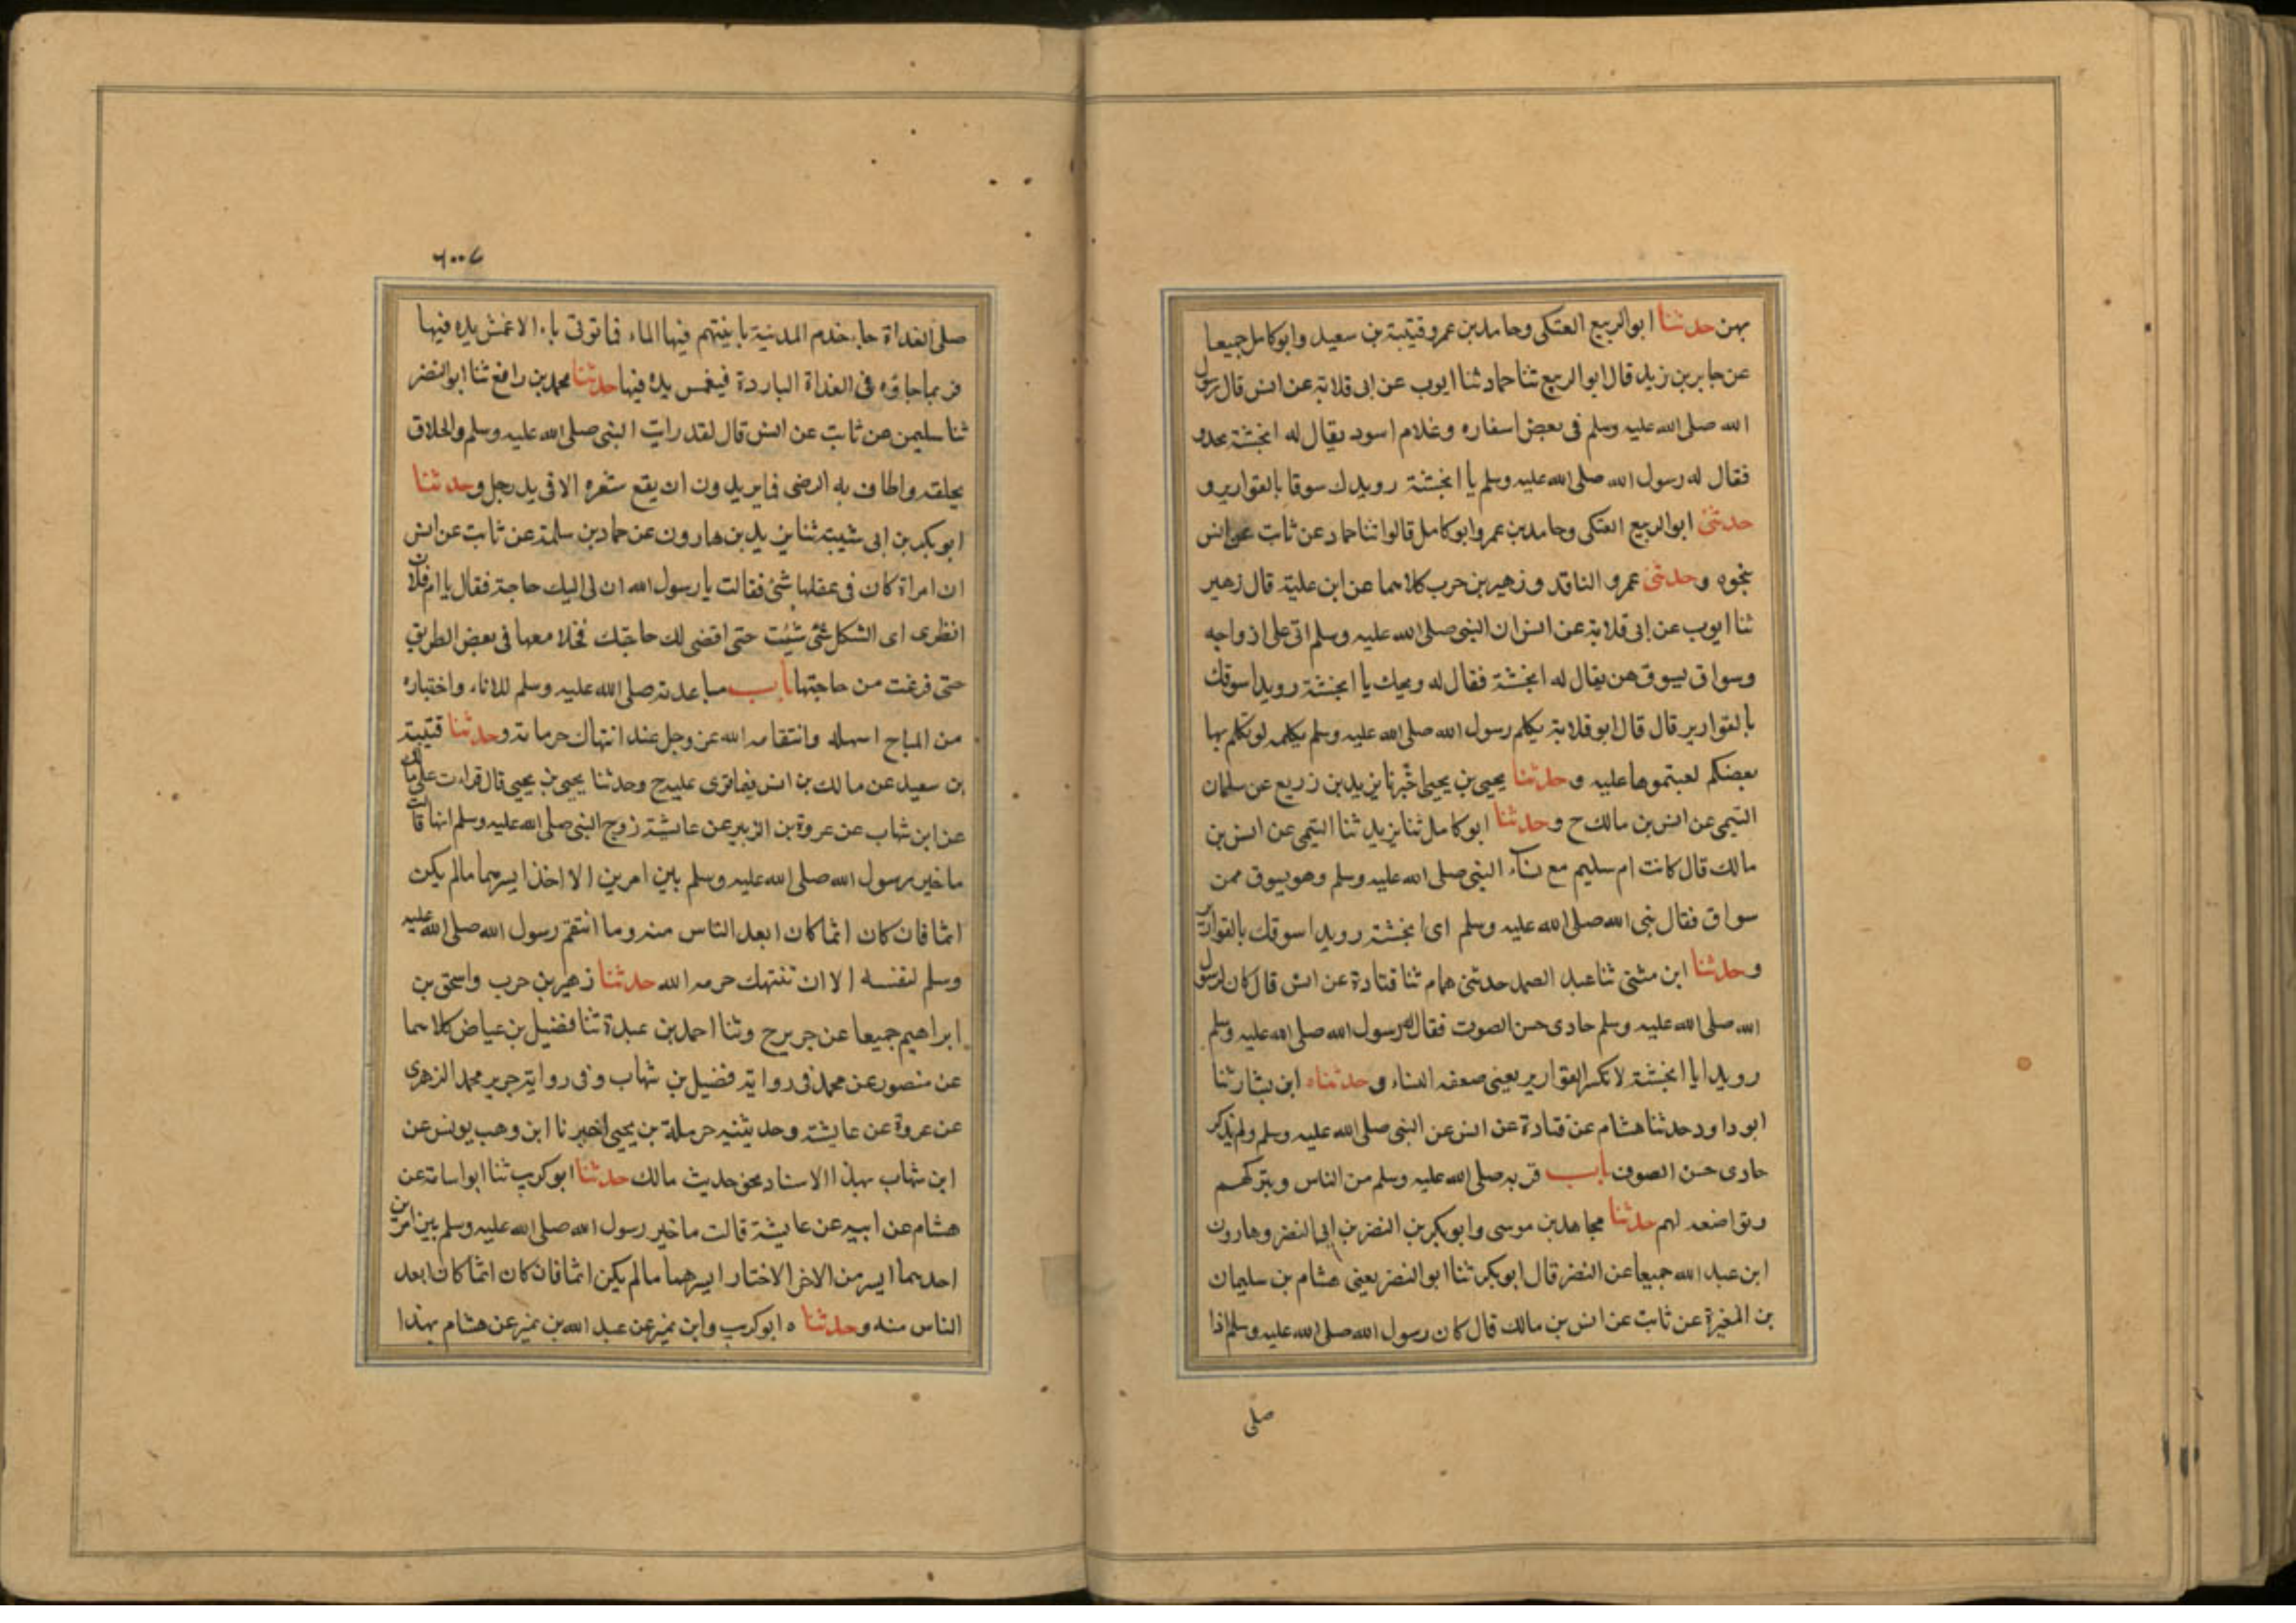 بهن حدثنا ابو الربيع العتكى وحامد بن عمر وقتيبة بن سعيد وابو كامل جميعا
عن جابر بن زيد قال ابو الربيع ثنا حماد ثنا ايوب عن ابى قلابة عن انس قال رسول
الله صلى الله عليه وسلم فى بعض اسفاره وغلام اسود يقال له انجشة يحدو
فقال له رسول الله صلى الله عليه وسلم يا انجشة رويدك سوقا بالقوارير و
حدثنى ابو الربيع العتكى وحامد بن عمر وابو كامل قالوا ثنا حماد عن ثابت عن انس
بنحوه وحدثنى عمرو الناقد وزهير بن حرب كلاهما عن ابن علية قال زهير
ثنا ايوب عن ابى قلابة عن انس ان النبى صلى الله عليه وسلم اتى على ازواجه
وسواق يسوق هن يقال له انجشة فقال له ويحك يا انجشة رويدا سوقك
بالقوارير قال قال ابو قلابة يكلم رسول الله صلى الله عليه وسلم بكلمه لو تكلم بها
بعضكم لعبتموها عليه وحدثنا يحيى بن يحيى اخبرنا يزيد بن زريع عن سلمان
التيمى عن انس بن مالك ح وحدثنا ابو كامل ثنا يزيد ثنا التيمى عن انس بن
مالك قال كانت ام سليم مع نساء النبى صلى الله عليه وسلم وهو يسوق ممن
سواق فقال نبى الله صلى الله عليه وسلم اى انجشة رويدا سوقك بالقوارير
وحدثنا ابن مثنى ثنا عبد الصمد حدثنى همام ثنا قتادة عن انس قال كان لرسول
الله صلى الله عليه وسلم حادى حسن الصوت فقال له رسول الله صلى الله عليه وسلم
رويدا يا انجشة لا تكسر القوارير يعنى ضعفه النساء وحدثناه ابن بشار ثنا
ابو داود حدثنا هشام عن قتادة عن انس عن النبى صلى الله عليه وسلم ولم يذكر
حادى حسن الصوت باب قربه صلى الله عليه وسلم من الناس وبتركهم
وتواضعه لهم حدثنا مجاهد بن موسى وابو بكر بن النضر بن ابى النضر وهارون
ابن عبد الله جميعا عن النضر قال ابو بكر ثنا ابو النضر يعنى هشام بن سليمان
بن المغيرة عن ثابت عن انس بن مالك قال كان رسول الله صلى الله عليه وسلم اذا
صلى
٦٠٠٧
صلى الغداة جاء خدم المدنية بانيتهم فيها الماء فاتوتى باء الا غمش يده فيها
فربما جاؤه فى الغداة الباردة فيغمس يده فيها حدثنا محمد بن رافع ثنا ابو النضر
ثنا سليمن عن ثابت عن انس قال لقد رايت النبى صلى الله عليه وسلم والحلاق
يحلقه واطاف به ارضى فما يريدون ان يقع شعره الا فى يد رجل وحدثنا
ابو بكر بن ابى شيبة ثنا يزيد بن هارون عن حماد بن سلمة عن ثابت عن انس
ان امراة كان فى عقلها شئ فقالت يا رسول الله ان لى اليك حاجة فقال يا ام فلان
انظرى اى الشكل شئ شئت حتى اقضى لك حاجتك فخلا معها فى بعض الطريق
حتى فرغت من حاجتها باب مباعدته صلى الله عليه وسلم للاثاء واختياره
من المباح اسهله وانتقامه الله عز وجل عند انتهاك حرماته وحدثنا قتيبة
بن سعيد عن مالك بن انس فيما قرى عليه ح وحدثنا يحيى بن يحيى قال قرات على مالك
عن ابن شهاب عن عروة بن الزبير عن عايشة زوج النبى صلى الله عليه وسلم انها قالت
ما خير رسول الله صلى الله عليه وسلم بين امرين الا اخذ ايسرهما مالم يكن
اثما فان كان اثما كان ابعد الناس منه وما انتقم رسول الله صلى الله عليه
وسلم لنفسه الا ان تنتهك حرمه الله حدثنا زهير بن حرب واسحق بن
ابراهيم جميعا عن جرير ح وثنا احمد بن عبدة ثنا فضيل بن عياض كلاهما
عن منصور عن محمد فى رواية فضيل بن شهاب وفى رواية جرير محمد الزهرى
عن عروة عن عايشة وحديثنيه حرملة بن يحيى اخبرنا ابن وهب يونس عن
ابن شهاب بهذا الاسناد نحو حديث مالك حدثنا ابو كريب ثنا ابو اسامة عن
هشام عن ابيه عن عايشة قالت ما خير رسول الله صلى الله عليه وسلم بين امرين
احدهما ايسر من الاخر الا ختار ايسرهما مالم يكن اثما فان كان اثما كان ابعد
الناس منه وحدثنا ه ابو كريب وابن نمير عن عبد الله بن نمير عن هشام بهذا